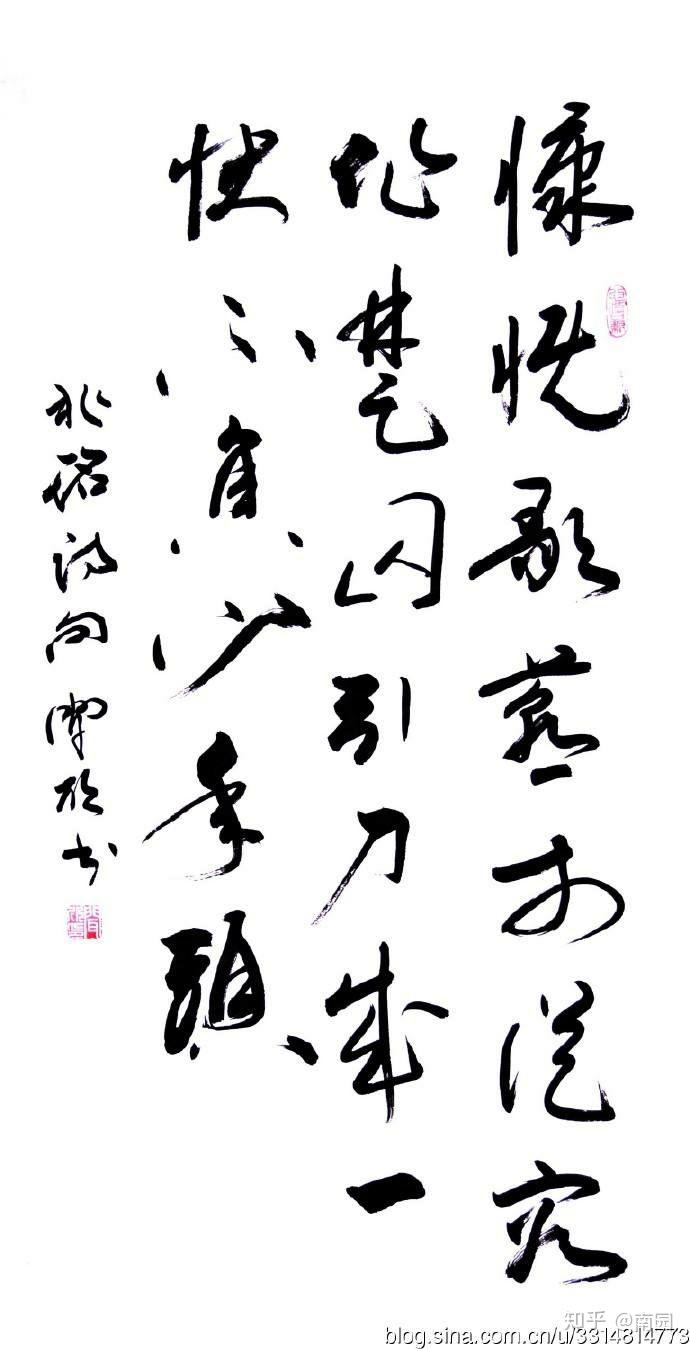 慷慨歌燕市從容
作楚囚引刀成一
快不負少年頭
兆銘詩句 书
知乎 @南园
blog.sina.com.cn/u/3314814773